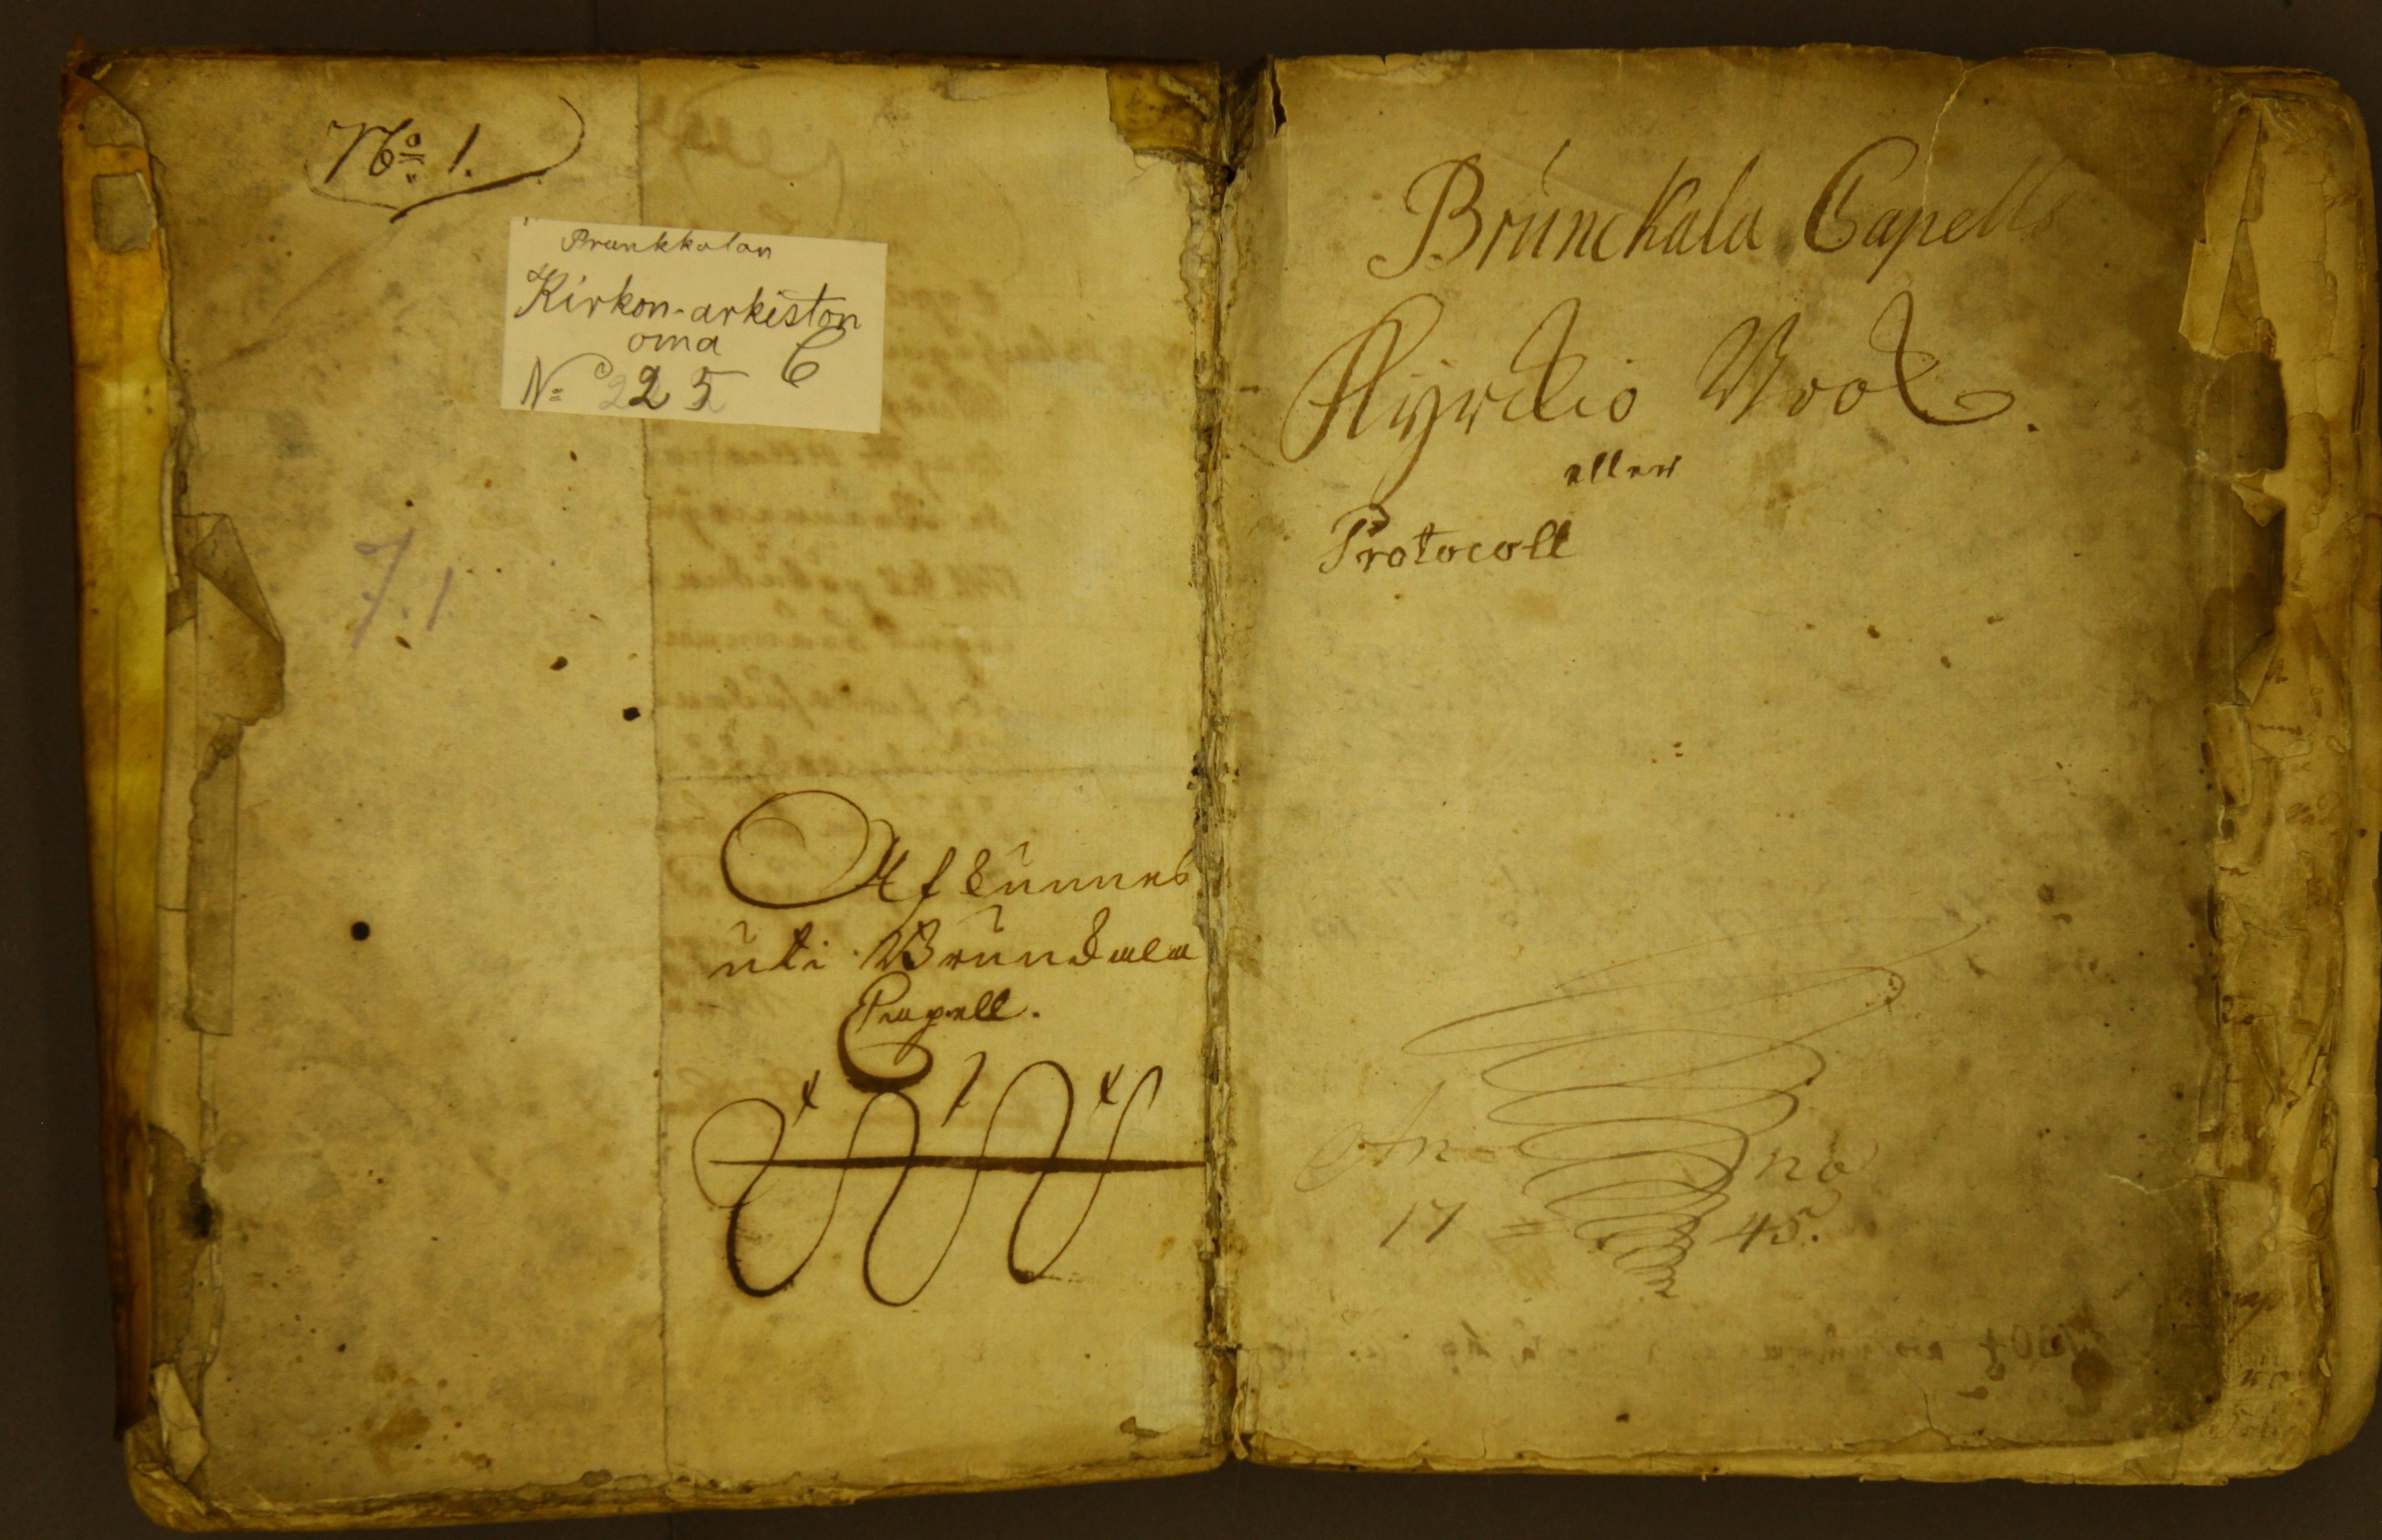 No 1.
Prunkkalan
Kirkon-arkiston
oma C
No 225
7.1.
Afkunnes
uti Brunkala
Capell.
Brunckala Capells
Kyrckio Book.
eller
Protocoll
An= no
17 = 45.